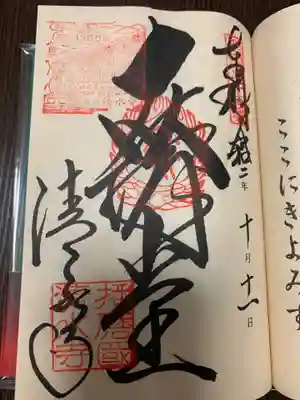 奉拝
二年十月十一日
大講堂
清水寺
播磨國
清水寺
ここにきよみす